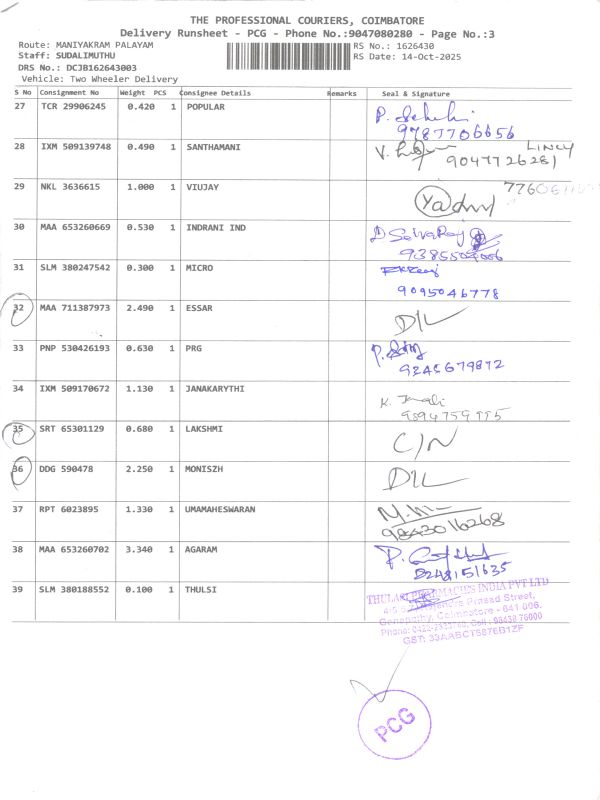 THE PROFESSIONAL COURIERS, COIMBATORE
Delivery Runsheet - PCG - Phone No.:9047080280 - Page No.:3
Route: MANIYAKRAM PALAYAM RS No.: 1626430
Staff: SUDALIMUTHU RS Date: 14-Oct-2025
DRS No.: DCJB162643003
Vehicle: Two Wheeler Delivery
S No Consignment No Weight PCS Consignee Details Remarks Seal & Signature
27 TCR 29906245 0.420 1 POPULAR
9787706656
28 IXM 509139748 0.490 1 SANTHAMANI LINCY
9047726281
29 NKL 3636615 1.000 1 VIUJAY
30 MAA 653260669 0.530 1 INDRANI IND
31 SLM 380247542 0.300 1 MICRO
9095046778
32 MAA 711387973 2.490 1 ESSAR D/L
33 PNP 530426193 0.630 1 PRG
34 IXM 509170672 1.130 1 JANAKARYTHI
35 SRT 65301129 0.680 1 LAKSHMI C/N
36 DDG 590478 2.250 1 MONISZH D/L
37 RPT 6023895 1.330 1 UMAMAHESWARAN
9843016268
38 MAA 653260702 3.340 1 AGARAM
39 SLM 380188552 0.100 1 THULSI
THULASI PHARMACIES INDIA PVT LTD
Prasad Street,
Ganapathy, Coimbatore - 641 006.
GST: 33AABCT5876B1ZF
PCG